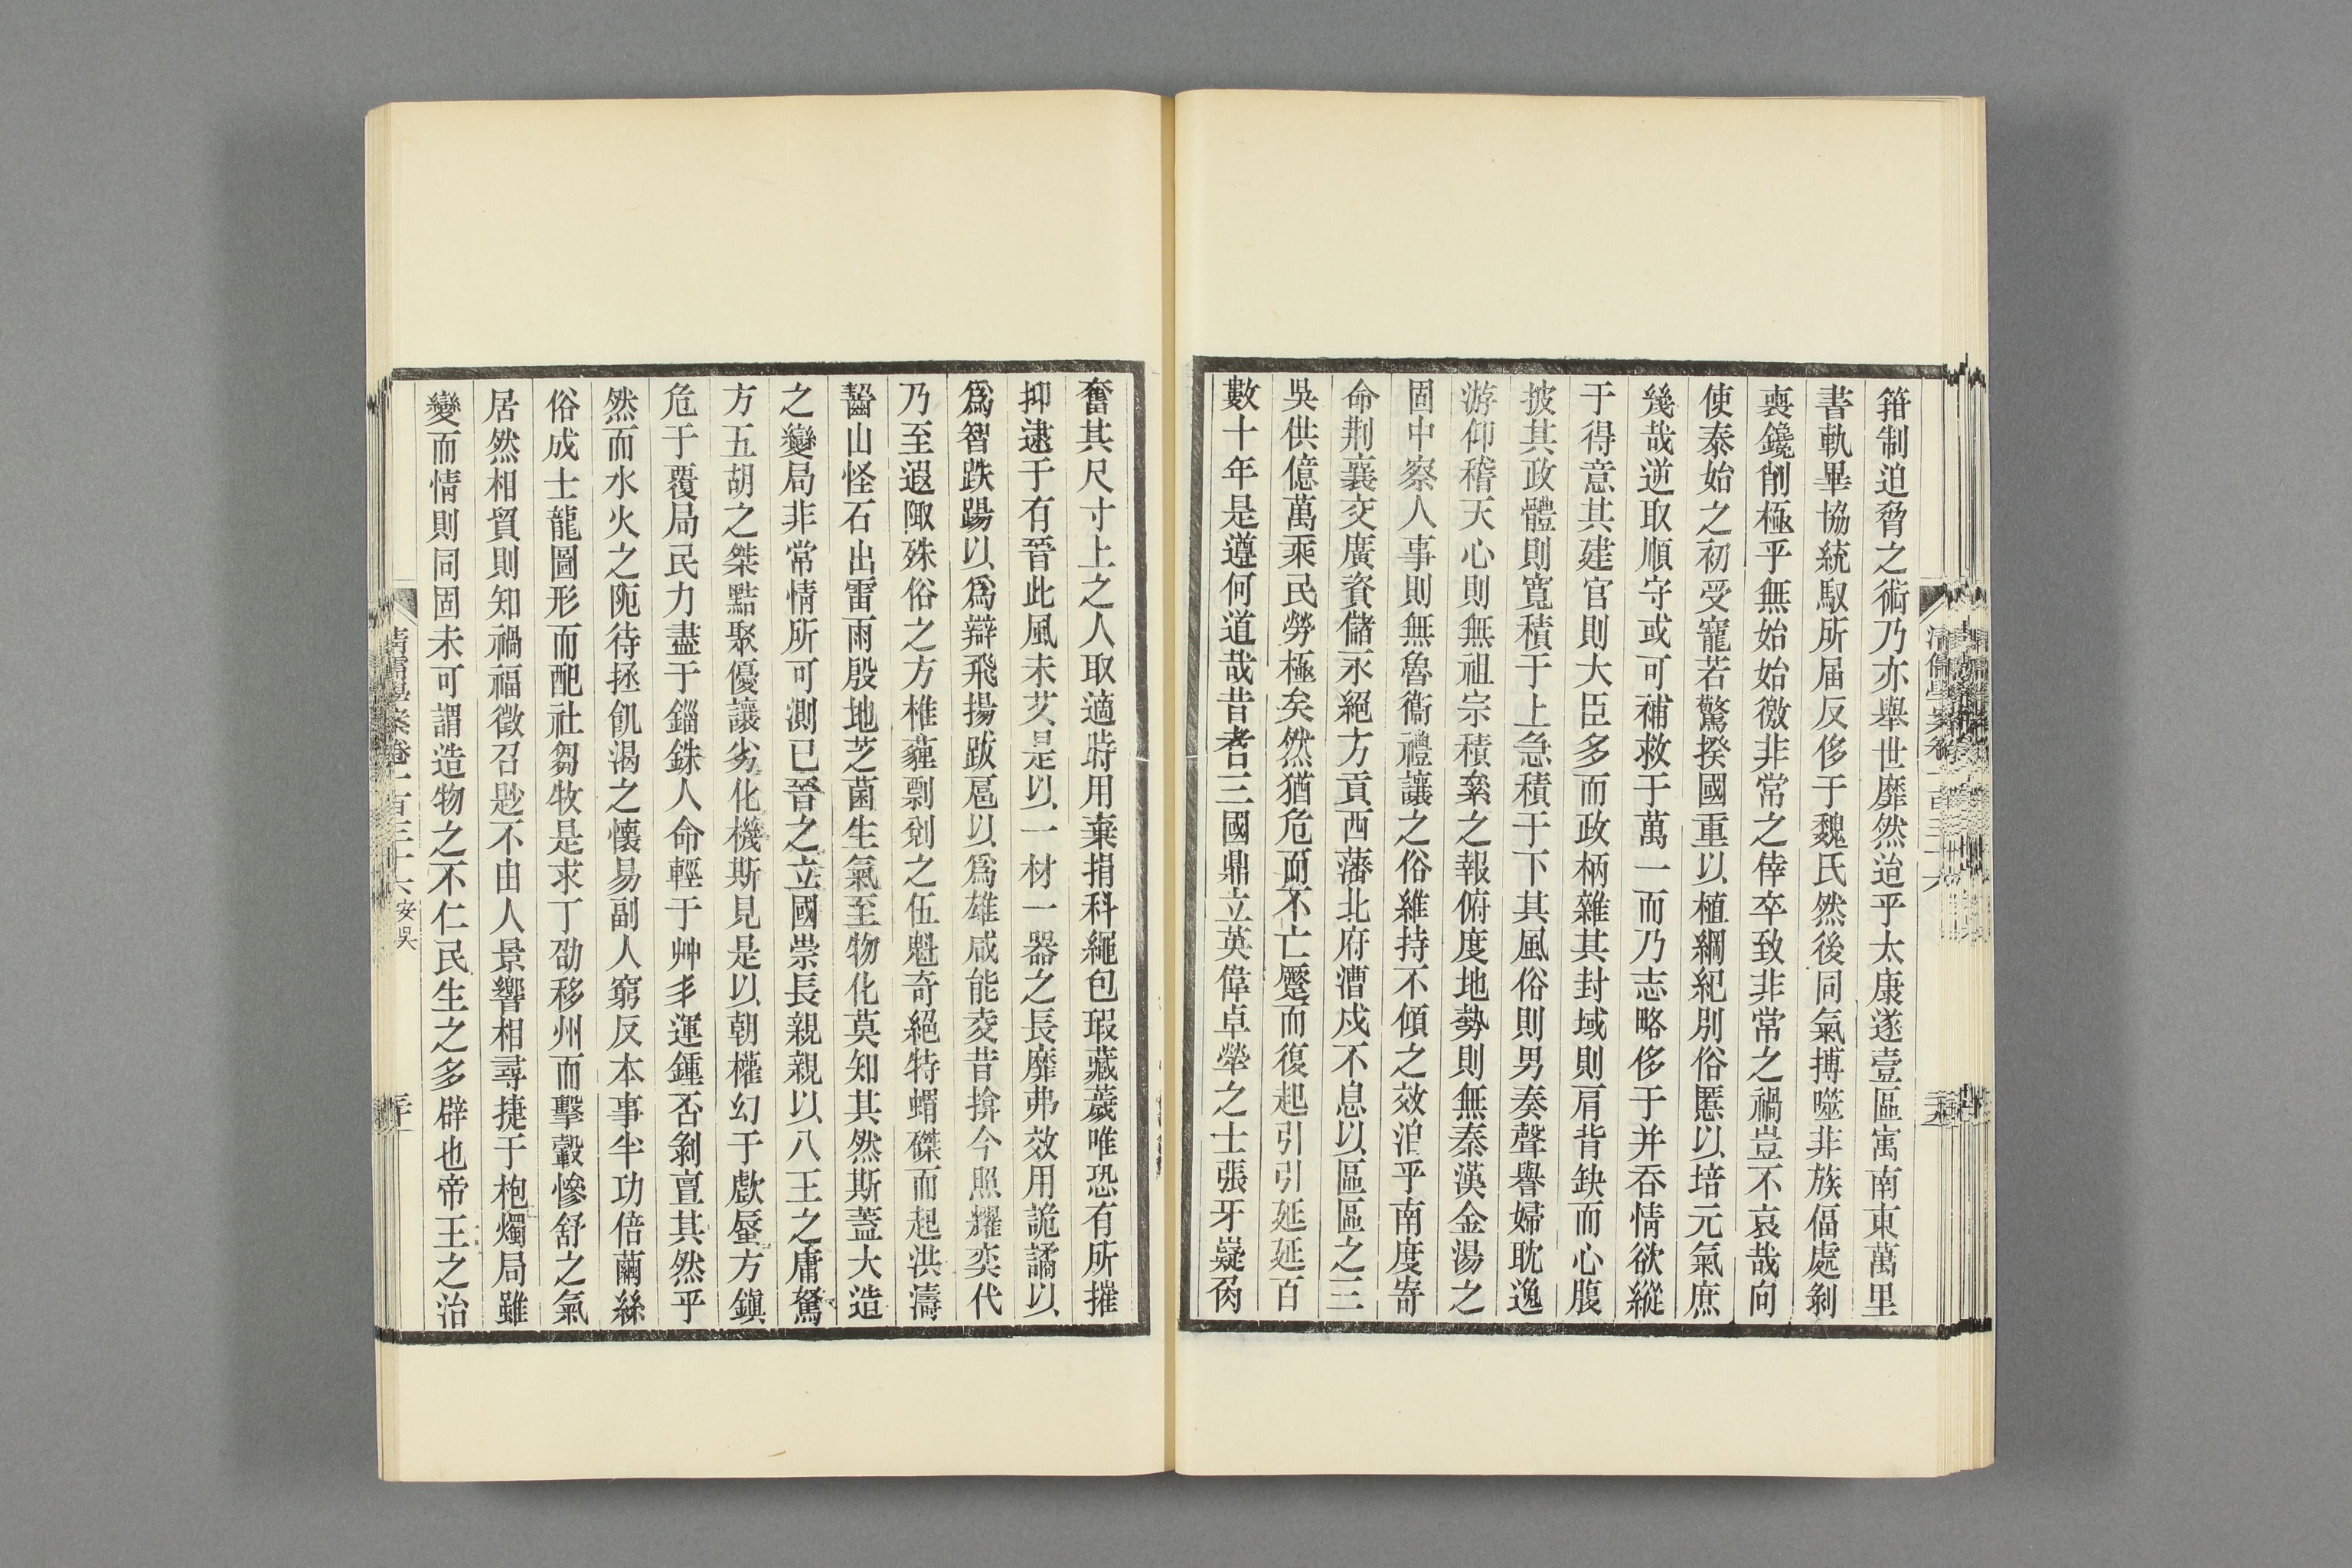 箝制迫脅之術乃亦舉世靡然迨乎太康遂壹區寓南東萬里
書軌畢協統馭所届反侈于魏氏然後同氣搏噬非族偪處剝
喪鑱削極乎無始始徼非常之倖卒致非常之禍豈不哀哉向
使泰始之初受寵若驚揆國重以植綱紀別俗慝以培元氣庶
幾哉逆取順守或可補救于萬一而乃志略侈于并吞情欲縱
于得意其建官則大臣多而政柄雜其封域則肩背缺而心腹
披其政體則寬積于上急積于下其風俗則男奏聲譽婦耽逸
游仰稽天心則無祖宗積絫之報俯度地勢則無秦漢金湯之
固中察人事則無魯衞禮讓之俗維持不傾之效洎乎南度寄
命荆襄交廣資儲永絕方貢西藩北府漕戍不息以區區之三
吳供億萬乘民勞極矣然猶危而不亡蹷而復起引引延延百
數十年是遵何道哉昔者三國鼎立英偉卓犖之士張牙嶷角
奮其尺寸上之人取適時用棄捐科繩包瑕藏薉唯恐有所摧
抑逮于有晉此風未艾是以一材一器之長靡弗效用詭譎以
爲智跌踼以爲辯飛揚跋扈以爲雄咸能夌昔揜今照耀奕代
乃至遐陬殊俗之方椎薶剽劊之伍魁奇絕特蝟磔而起洪濤
齧山怪石出雷雨殷地芝菌生氣至物化莫知其然斯蓋大造
之變局非常情所可測已晉之立國崇長親親以八王之庸駑
方五胡之桀黠聚優讓劣化機斯見是以朝權幻于戲蜃方鎭
危于覆局民力盡于錙銖人命輕于艸豸運鍾否剝亶其然乎
然而水火之阨待拯飢渴之懷易副人窮反本事半功倍繭絲
俗成士龍圖形而配社芻牧是求丁劭移州而擊轂慘舒之氣
居然相貿則知禍福徵召匙不由人景響相尋捷于枹燭局雖
變而情則同固未可謂造物之不仁民生之多辟也帝王之治
清儒學案卷一百三十六 安吳